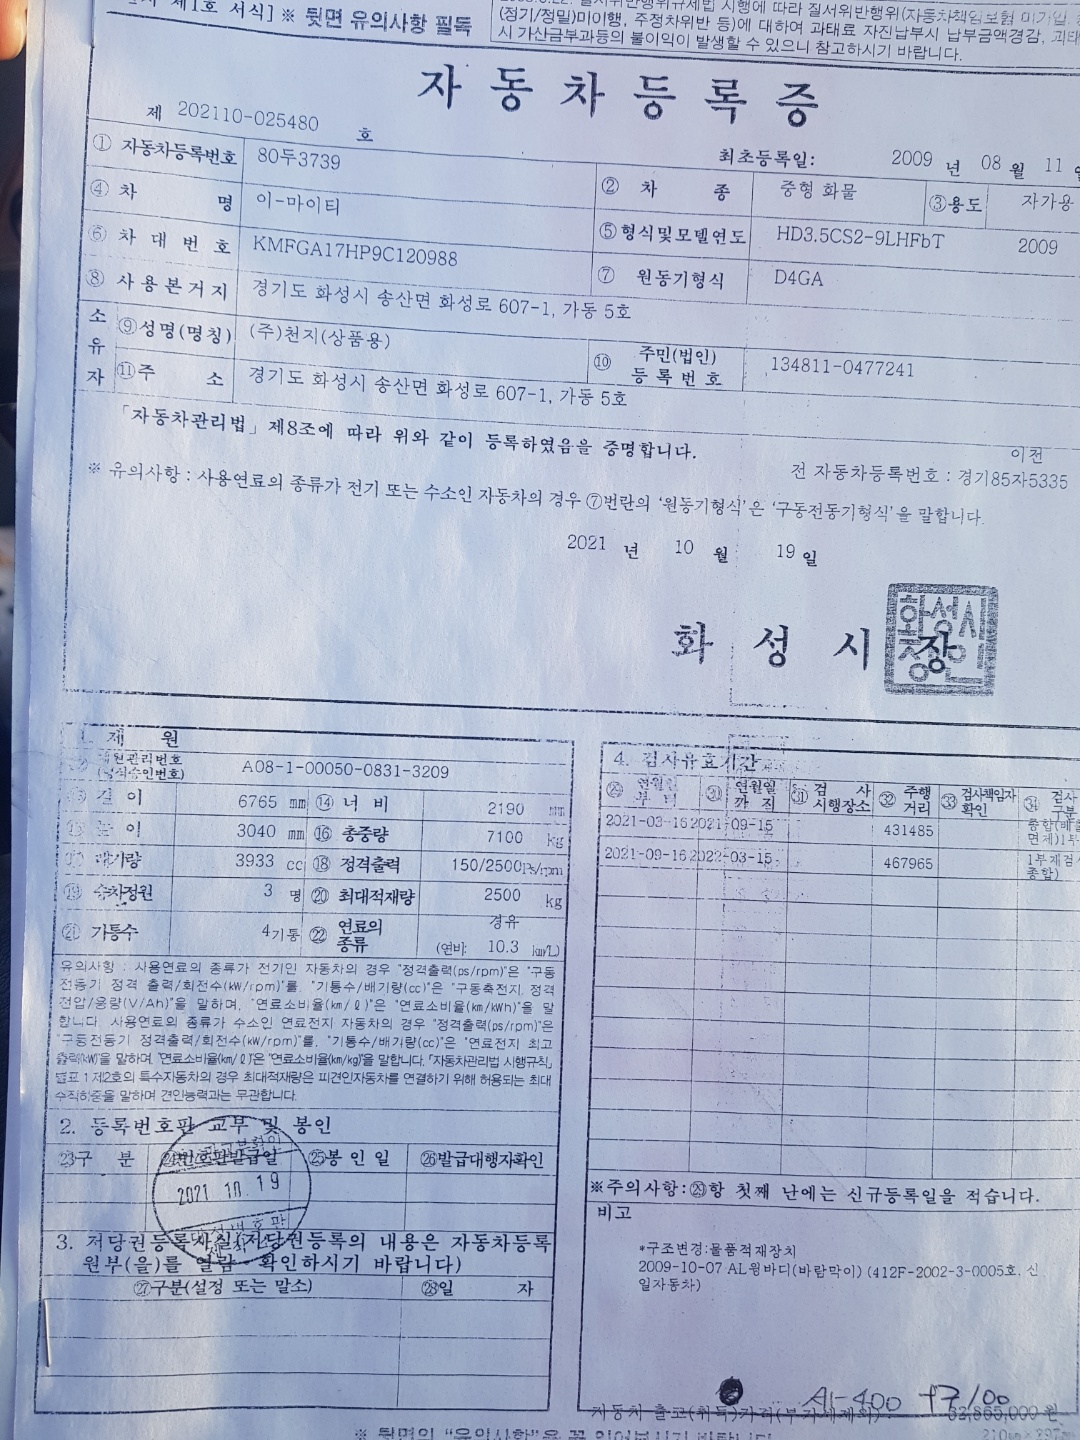 제1호 서식] ※ 뒷면 유의사항 필독
시행에 따라 질서위반행위(자동차책임보험 미가입,
(정기/정밀)미이행, 주정차위반 등)에 대하여 과태료 자진납부시 납부금액경감,
시 가산금부과등의 불이익이 발생할 수 있으니 참고하시기 바랍니다.
자동차등록증
제 202110-025480 호
최초등록일: 2009 년 08 월 11
① 자동차등록번호 80두3739 ② 차 종 중형 화물 ③용도 자가용
④ 차 명 이-마이티 ⑤형식및모델연도 HD3.5CS2-9LHFbT 2009
⑥ 차 대 번 호 KMFGA17HP9C120988 ⑦ 원동기형식 D4GA
⑧ 사 용 본 거 지 경기도 화성시 송산면 화성로 607-1, 가동 5호
소유자 ⑨성명(명칭) (주)천지(상품용) ⑩ 주민(법인)등록번호 134811-0477241
⑪주 소 경기도 화성시 송산면 화성로 607-1, 가동 5호
「자동차관리법」제8조에 따라 위와 같이 등록하였음을 증명합니다.
이천
전 자동차등록번호 : 경기85자5335
※ 유의사항 : 사용연료의 종류가 전기 또는 수소인 자동차의 경우 ⑦번란의 '원동기형식'은 '구동전동기형식'을 말합니다.
2021 년 10 월 19 일
화 성 시 장
1. 제 원
(형식승인번호) A08-1-00050-0831-3209
길 이 6765 mm ⑭ 너 비 2190 mm
높 이 3040 mm ⑯ 총중량 7100 kg
배기량 3933 cc ⑱ 정격출력 150/2500ps/rpm
⑲ 승차정원 3 명 ⑳ 최대적재량 2500 kg
㉑ 기통수 4기통 ㉒ 연료의 종류 경유 (연비: 10.3 km/L)
유의사항 : 사용연료의 종류가 전기인 자동차의 경우 "정격출력(ps/rpm)"은 "구동
전동기 정격 출력/회전수(kW/rpm)"를, "기통수/배기량(cc)"은 "구동축전지 정격
전압/용량(V/Ah)"을 말하며, "연료소비율(km/ℓ)"은 "연료소비율(km/kWh)"을 말
합니다. 사용연료의 종류가 수소인 연료전지 자동차의 경우 "정격출력(ps/rpm)"은
"구동전동기 정격출력/회전수(kW/rpm)"를, "기통수/배기량(cc)"은 "연료전지 최고
출력(kW)"을 말하며, "연료소비율(km/ℓ)"은 "연료소비율(km/kg)"을 말합니다. 「자동차관리법 시행규칙」
별표 1 제2호의 특수자동차의 경우 최대적재량은 피견인자동차를 연결하기 위해 허용되는 최대
수직하중을 말하며 견인능력과는 무관합니다.
2. 등록번호판 교부 및 봉인
㉓구 분 ㉔번호판발급일 ㉕봉 인 일 ㉖발급대행자확인
2021 10. 19
3. 저당권등록사실(저당권등록의 내용은 자동차등록
원부(을)를 열람 확인하시기 바랍니다)
㉗구분(설정 또는 말소) ㉘일 자
4. 검사유효기간
㉙ 연월일 부터 ㉚ 연월일 까지 ㉛ 검 사 시행장소 ㉜ 주행 거리 ㉝ 검사책임자 확인 ㉞ 검사 구분
2021-03-16 2021-09-15 431485
2021-09-16 2022-03-15 467965 1부재검 종합)
※주의사항:㉙항 첫째 난에는 신규등록일을 적습니다.
비고
*구조변경:물품적재장치
2009-10-07 AL윙바디(바람막이) (412F-2002-3-0005호, 신
일자동차)
A1-400 +7/00
자동차 출고(취득)가격(부가세제외) : 원
※ 뒷면의 "유의사항"을 꼭 읽어보시기 바랍니다